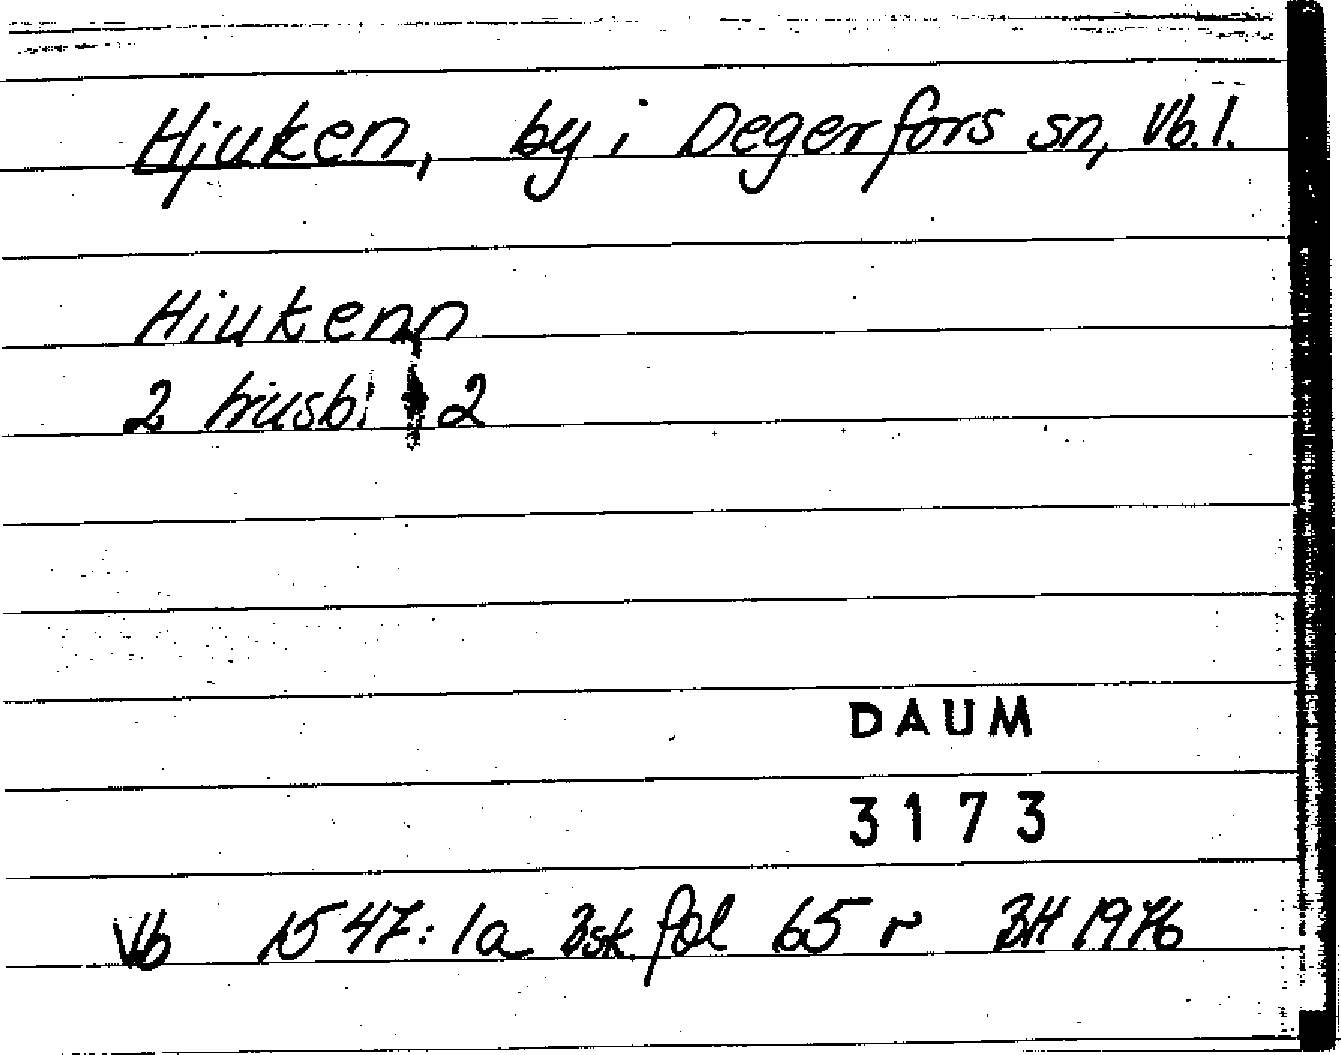 Hjuken, by i Degerfors sn, Vb. l.
Hiukenn
2 husbl 2
DAUM
3173
Vb 1547: 1a Bsk. fol 65 r BH 1976